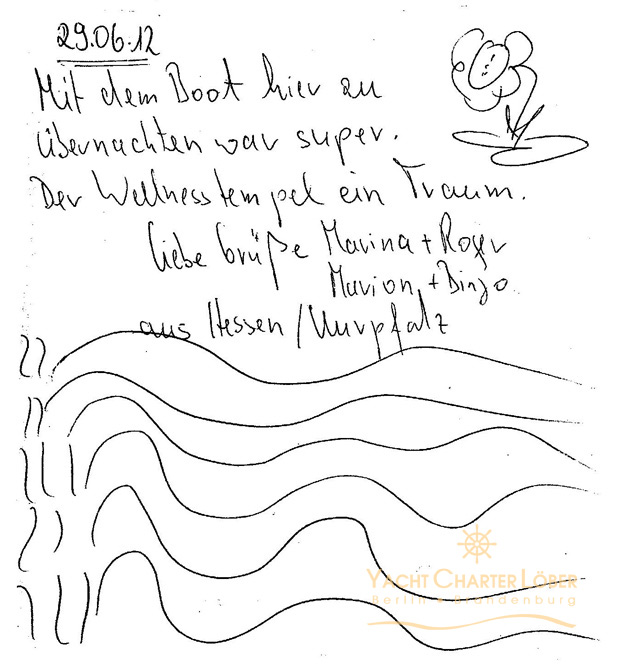 29.06.12
Mit dem Boot hier zu
übernachten war super.
Der Wellnesstempel ein Traum.
Liebe Grüße Marina + Roger
Marion + Bingo
aus Hessen / Kurpfalz
YACHT CHARTER LÖBER
Berlin • Brandenburg